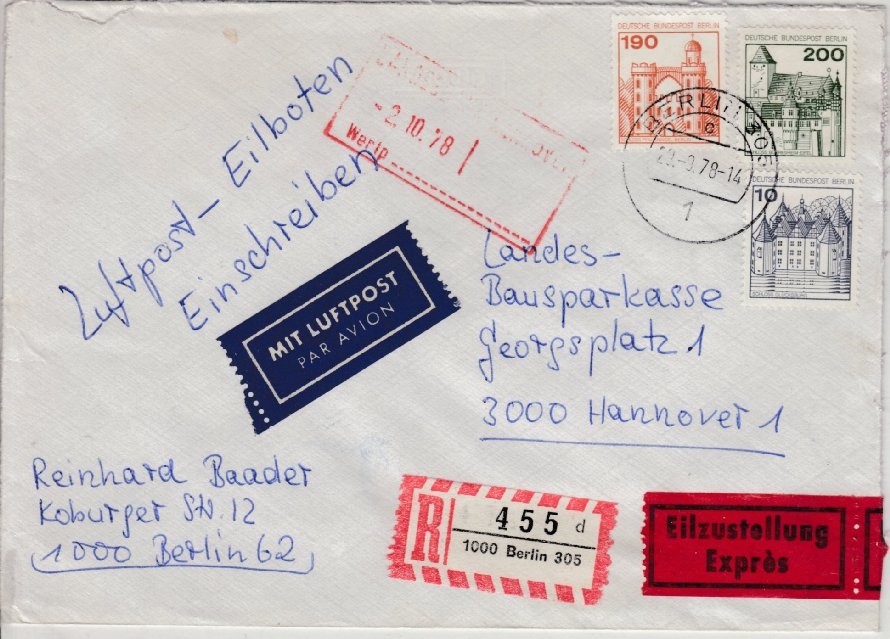 Luftpost – Eilboten
Einschreiben
- 2. 10. 78
Wertp
190
DEUTSCHE BUNDESPOST BERLIN
200
DEUTSCHE BUNDESPOST BERLIN
10
DEUTSCHE BUNDESPOST BERLIN
BERLIN 305
c
-9.78-14
1
MIT LUFTPOST
PAR AVION
Landes-
Bausparkasse
Georgsplatz 1
3000 Hannover 1
Reinhard Baader
Koburger Str. 12
1000 Berlin 62
R
455 d
1000 Berlin 305
Eilzustellung
Exprès